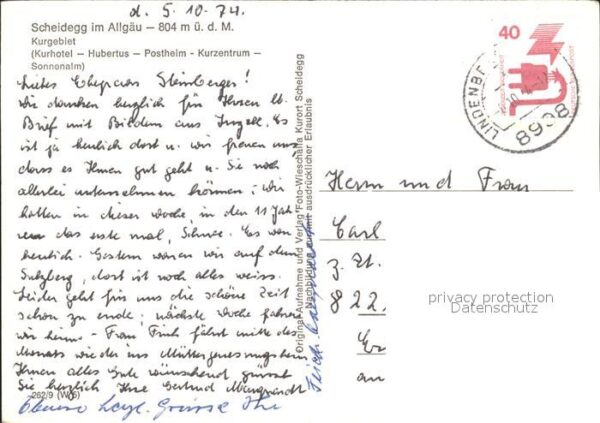 d. 5.10.74.
Scheidegg im Allgäu – 804 m ü. d. M.
Kurgebiet
(Kurhotel – Hubertus – Postheim - Kurzentrum –
Sonnenalm)
Liebes Ehepaar Steinberger!
Wir danken herzlich für Ihren lb.
Brief mit Bildern aus Inzell. Es
ist ja herrlich dort u. wir freuen uns
dass es Ihnen gut geht u. Sie noch
allerlei unternehmen können; wir
hatten in dieser Woche, in den 11 Jah
ren das erste mal, Schnee. Es war
herrlich. Gestern waren wir auf dem
Sulzberg, dort ist noch alles weiss.
Leider geht für uns die schöne Zeit
schon zu ende; nächste Woche fahren
wir heim - Frau Frich fährt mitte des
Monats wieder ins Müttergenesungsheim
Ihnen alles Gute wünschend grüsst
Sie herzlich Ihre Gertrud
262/9 (W6)
Ebenso herzl. Grüsse Ihre
Original-Aufnahme und Verlag Foto-Wieschalla Kurort Scheidegg
Nachbildung nur mit ausdrücklicher Erlaubnis
40
8998
Herrn und Frau
Carl
z. Zt.
822
an
privacy protection
Datenschutz